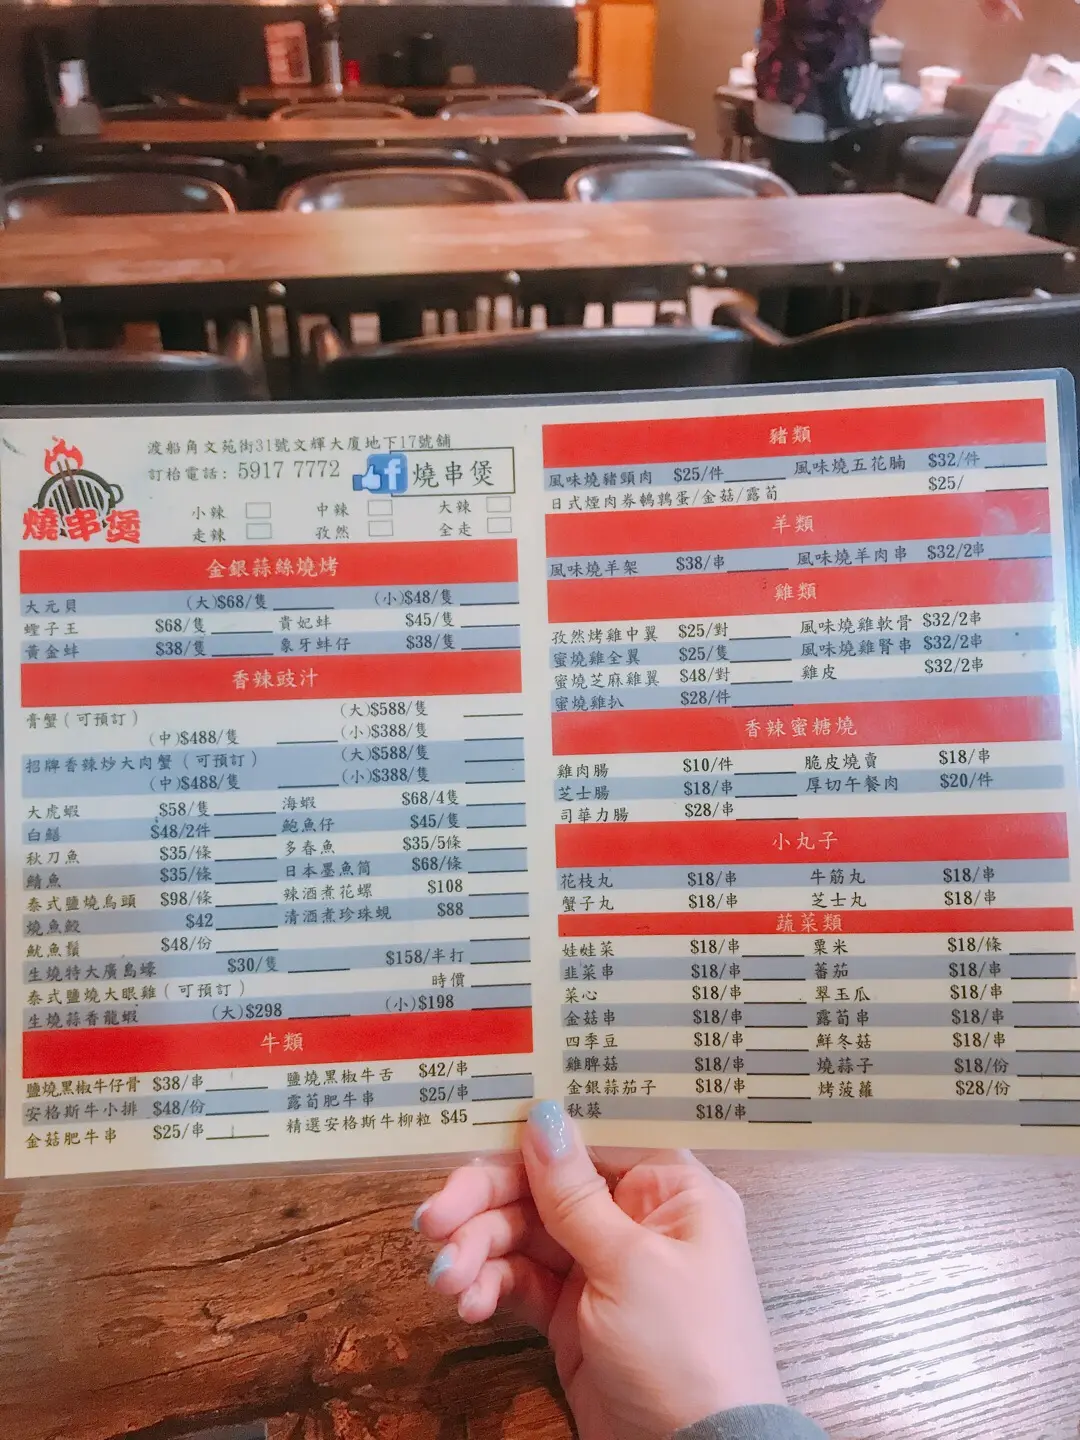 渡船角文苑街31號文輝大廈地下17號舖
訂枱電話: 5917 7772
f 燒串煲
燒串煲
小辣 中辣 大辣
走辣 孜然 全走
金銀蒜絲燒烤
大元貝 (大)$68/隻 (小)$48/隻
蟶子王 $68/隻 貴妃蚌 $45/隻
黃金蚌 $38/隻 象牙蚌仔 $38/隻
香辣豉汁
膏蟹(可預訂) (大)$588/隻
(中)$488/隻 (小)$388/隻
招牌香辣炒大肉蟹(可預訂) (大)$588/隻
(中)$488/隻 (小)$388/隻
大虎蝦 $58/隻 海蝦 $68/4隻
白鱔 $48/2件 鮑魚仔 $45/隻
秋刀魚 $35/條 多春魚 $35/5條
鯖魚 $35/條 日本墨魚筒 $68/條
泰式鹽燒烏頭 $98/條 辣酒煮花螺 $108
燒魚鮫 $42 清酒煮珍珠蜆 $88
魷魚鬚 $48/份
生燒特大廣島蠔 $30/隻 $158/半打
泰式鹽燒大眼雞(可預訂) 時價
生燒蒜香龍蝦 (大)$298 (小)$198
牛類
鹽燒黑椒牛仔骨 $38/串 鹽燒黑椒牛舌 $42/串
安格斯牛小排 $48/份 露荀肥牛串 $25/串
金菇肥牛串 $25/串 精選安格斯牛柳粒 $45
豬類
風味燒豬頸肉 $25/件 風味燒五花腩 $32/件
日式煙肉券鵪鶉蛋/金菇/露荀 $25/
羊類
風味燒羊架 $38/串 風味燒羊肉串 $32/2串
雞類
孜然烤雞中翼 $25/對 風味燒雞軟骨 $32/2串
蜜燒雞全翼 $25/隻 風味燒雞腎串 $32/2串
蜜燒芝麻雞翼 $48/對 雞皮 $32/2串
蜜燒雞扒 $28/件
香辣蜜糖燒
雞肉腸 $10/件 脆皮燒賣 $18/串
芝士腸 $18/串 厚切午餐肉 $20/件
司華力腸 $28/串
小丸子
花枝丸 $18/串 牛筋丸 $18/串
蟹子丸 $18/串 芝士丸 $18/串
蔬菜類
娃娃菜 $18/串 粟米 $18/條
韭菜串 $18/串 蕃茄 $18/串
菜心 $18/串 翠玉瓜 $18/串
金菇串 $18/串 露荀串 $18/串
四季豆 $18/串 鮮冬菇 $18/串
雞脾菇 $18/串 燒蒜子 $18/份
金銀蒜茄子 $18/串 烤菠蘿 $28/份
秋葵 $18/串